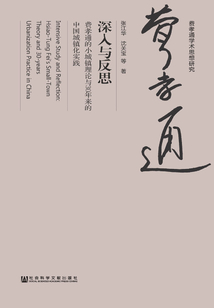 费孝通学术思想研究
费孝通
张江华 沈关宝 等 著
深入与反思
费孝通的小城镇理论与30年来的
中国城镇化实践
Intensive Study and Reflection:
Hsiao-Tung Fei's Small-Town
Theory and 30-years
Urbanization Practice in China
社会科学文献出版社